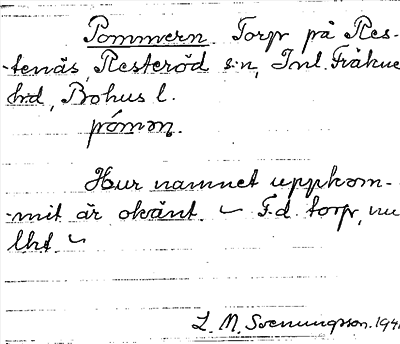 Pommern. Torp på Res-
-tenäs, Resteröd s:n, Inl. Fräkne
hd, Bohus l.
pómmn.
Hur namnet uppkom-
-mit är okänt. ~ F.d. torp, nu
lht. ~
L. M. Svenungsson. 194